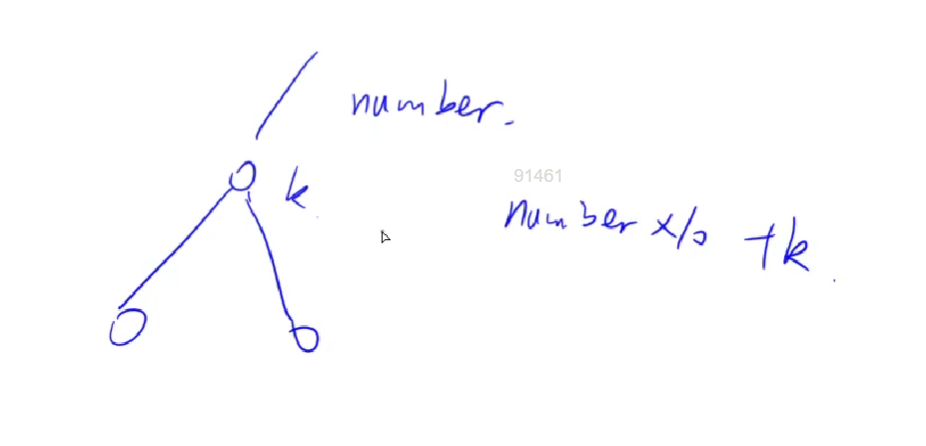 number.
k
91461
number x/o +k.